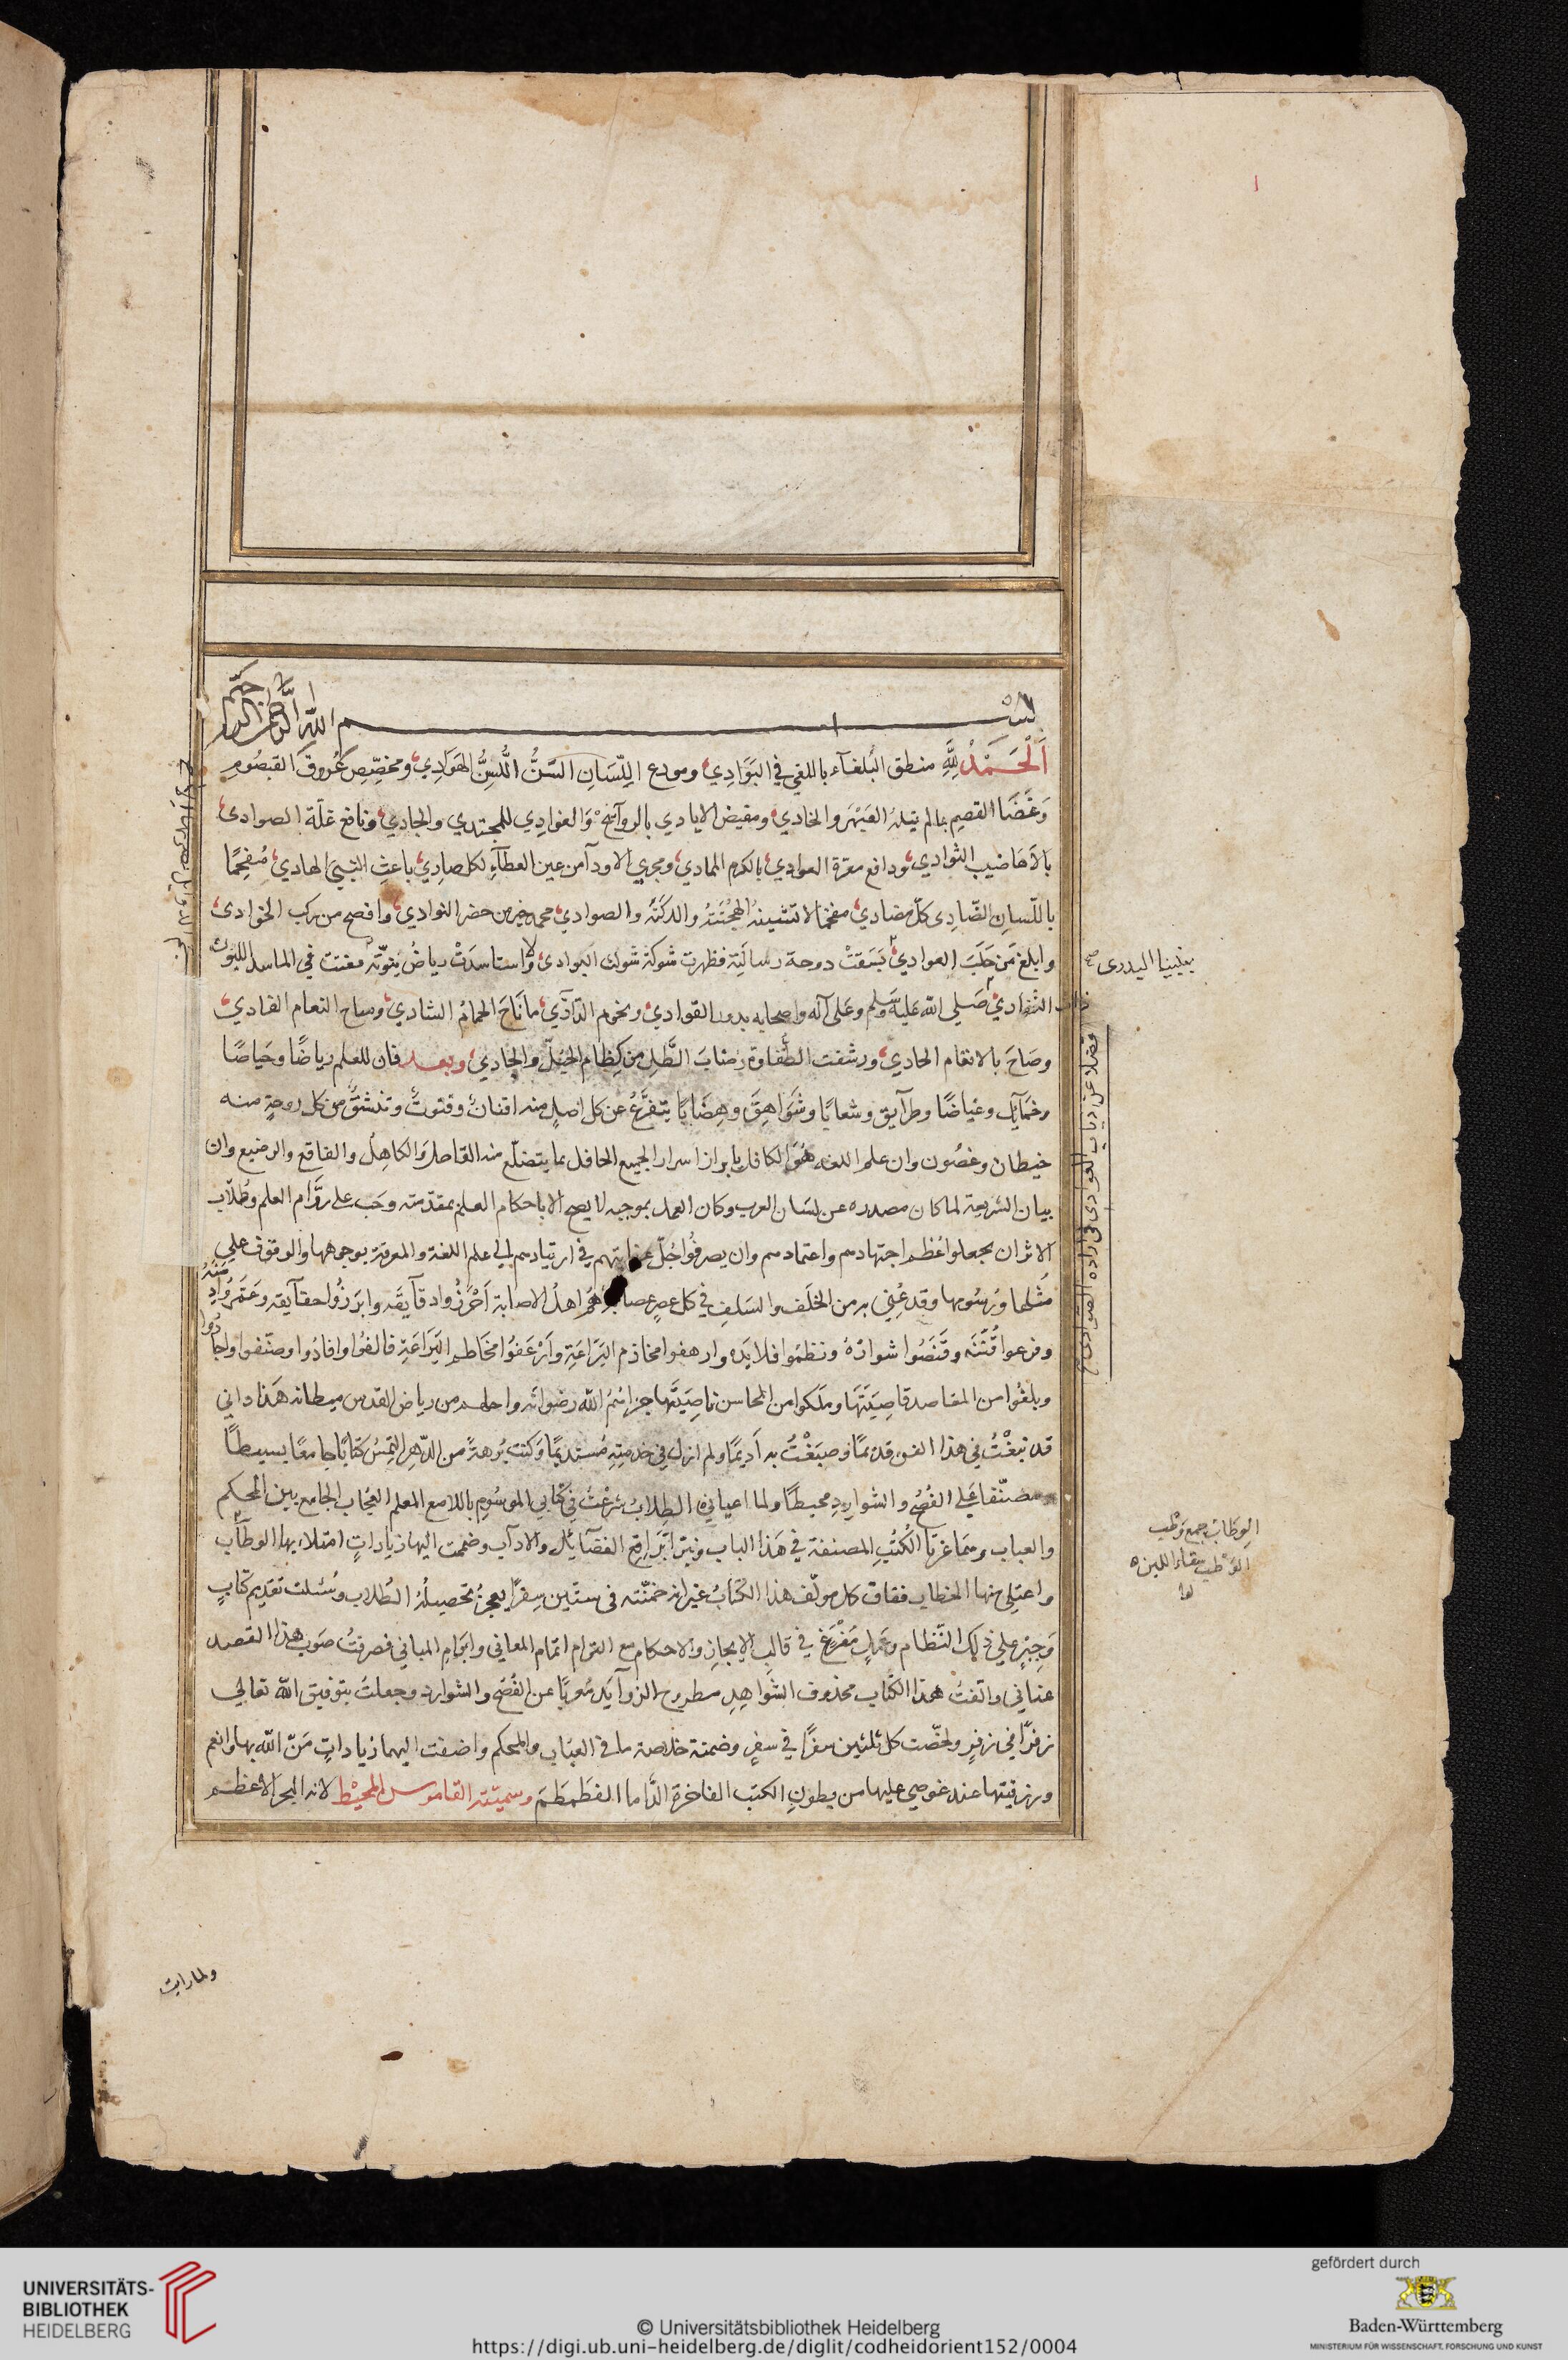 بسم الله الرحمن الرحيم
اَلْحَمْدُ لِلَّهِ منطق البُلغآء باللغي في البَوَادِي ومودع اللِّسَانِ السَّنِّ اللُّسُنِ الهَوَادِي ومخصِّصِ عُروقِ القيصُومِ
وَغَضَا القصيم بما لم ينلهُ العَبْهَر والجادي ومفيض الايادي بالروآئح وَالغوادِي للمجتدي والجادي وناقع غلّة الصوادي
بالاَهَاضيب الثوادي ودافع معرّة العوادي بالكرم المادي ومجري الاودآمن عين العطآءِ لكل صادِي باعثِ النبيّ الهادي مُفحِمًا
باللّسانِ الضّادِي كلّ مضادي مفخما لا تشينهُ الهُجْنَةُ واللكنَة والضوادي محمد خير من حضر النوادي وافصح من ركب الخوادي
وابلغ مَن حَلَبَ العوادي بَسَقتْ دوحة رسالَتِه فظهرت شوكة شوك الكوادي واستاسدَتْ رياضُ نبوّتهِ فعنت في الماسد الليوث
العوادي صَلي الله عليه وسَلم وعَلى آله واصحابه بدور القوادي ونجوم الدّآدي ما نَاحَ الحمامُ الشادي وساح النعام القادي
وصَاحَ بالانغام الحادي ورشفت الطُّفاوة رضابَ الطَّلِ من كِظام الجُلّ والجادي وبعد فان للعلم رياضًا وحَياضًا
وخمآيل وغياضًا وطرآيق وشعابًا وشَوَاهِقَ وهِضَابًا يتفرّعُ عن كل اصلٍ منه افنانٌ وفنونٌ وتنشقُّ من كل دوحةٍ منه
خيطان وغصُون وان علم اللغه هُوَ الكافل بابراز اسرار الجميع الحافل بما يتضلّع منه القاصل وَالكاهِلُ والفاقع والرضيع وان
بيان الشريعة لما كان مصدره عن لسَان العرب وكان العمل بموجبه لا يصح الا باحكام العلم بمقدّمته وجَب على رُوَّام العلم وطُلّاب
الاثران يجعلوا عُظم اجتهادهم واعتمادهم وان يصرفُوا جُلّ عنايتهم في ارتيادهم الي علم اللغة والمعرفة بوجوهها والوقوف علي
مُثُلها ورُسُومها وقد عُنِي به من الخلَف والسَلفِ في كل عصرٍ عصابةٌ هُمُ اهلُ الاصابة اَحْرَزُوا دقآيقَه وابَرزُوا حقآيقه وعَمَرُوا دِمَنَهُ
وفرعوا قُنَنَه وقَنَصُوا شوارِدَهُ ونظمُوا قلايدَه وارهفوا مخاذم البَراعَةِ وَارْعَفُوا مخَاطم اليَرَاعَةِ فالفُوا وافادُوا وصنّفوا واجادُوا
وبلغُوا من المقاصد قاصِيَتَهَا ومَلَكوا من المحاسن ناصِيَتَها جزاهُمُ الله رضوانَه واحلهم من رياض القدس ميطانه هَذا واني
قد نبغْتُ في هذا الفن قديمًا وصبَغْتُ به اَديمًا ولم ازل في خدمتِهِ مُستديمًا وكنت بُرهةً من الدّهرِ التمِسُ كتابًا جامعًا بسيطًا
مصنّفا عَلي الفُصُح والشوارِدِ محيطًا ولما اعياني الطِلابُ شرعْتُ في كتابي الموسُومِ باللامع المعلم العُجَاب الجامع بين المحكم
والعباب وهمَا غرّتا الكُتُبِ المصنفة في هَذا الباب ونيّرا بَرَاقِعِ الفضآئلِ والادآبِ وضممت اليهما زياداتٍ امتلاء بها الوطآب
واعتلي منها الخطاب ففاق كل مولّف هذا الكِتابُ غير انه خمنّته في ستّين سِفرًا يعجزُ تحصيلُهُ الطُلاب وسُئلت تقديم كتابٍ
وَجِيزٍ علي ذلك النّظام وعَمَلٍ مُفْرَغٍ في قَالبِ الايجازِ والاحكام مع التزام اتمام المعاني وابرَام المباني فصرفتُ صَوبَ هذا القصد
عناني والّفتُ هذا الكتاب محذوف الشَواهِدِ مطروح الزوآيَد مُعربًا عن الفُصُح والشوارد وجعلتُ بتوفيق الله تعالي
زفرًا في زفرٍ ولخّصت كل ثلثين سفرًا في سفرٍ وضمنته خلاصة ما في العبَاب والمحكم واضفت اليهما زياداتٍ مَنّ الله بها وانعم
ورزقنيها عند غوصي عليها من بطونِ الكتب الفاخرة الدّاما الغطمطمَ وسمّيته القاموس المحيْط لانه البحر الاعظم
فضلا عن
الوِطابُ جمع وَطْب
الوَطْب سقاء اللبن
ولما رايت
UNIVERSITÄTS-
BIBLIOTHEK
HEIDELBERG
© Universitätsbibliothek Heidelberg
https://digi.ub.uni-heidelberg.de/diglit/codheidorient152/0004
gefördert durch
Baden-Württemberg
MINISTERIUM FÜR WISSENSCHAFT, FORSCHUNG UND KUNST